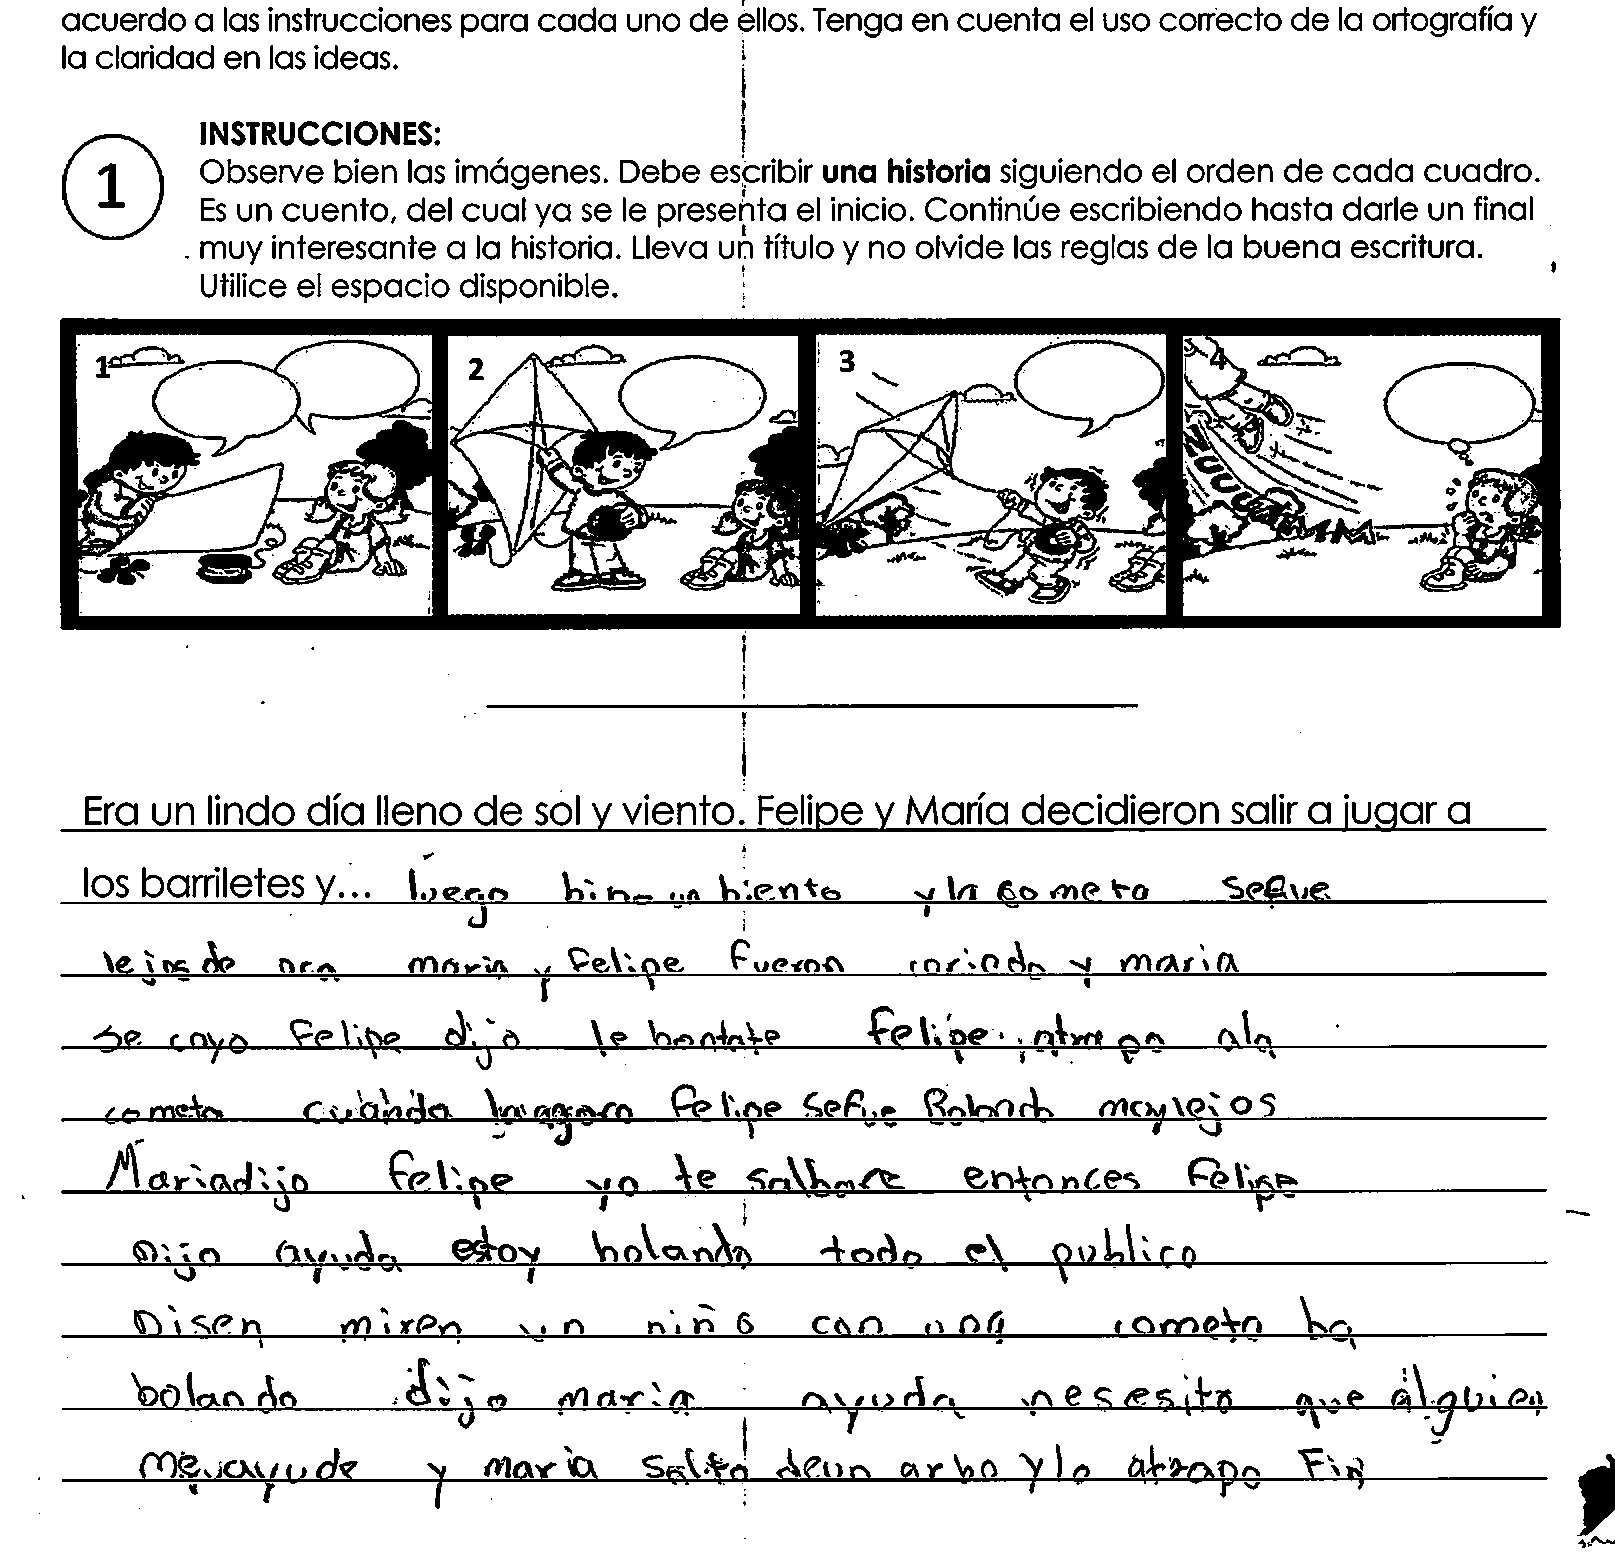 acuerdo a las instrucciones para cada uno de ellos. Tenga en cuenta el uso correcto de la ortografía y
la claridad en las ideas.
1
INSTRUCCIONES:
Observe bien las imágenes. Debe escribir una historia siguiendo el orden de cada cuadro.
Es un cuento, del cual ya se le presenta el inicio. Continúe escribiendo hasta darle un final
muy interesante a la historia. Lleva un título y no olvide las reglas de la buena escritura.
Utilice el espacio disponible.
1 2 3 4
Era un lindo día lleno de sol y viento. Felipe y María decidieron salir a jugar a
los barriletes y... luego bino un biento y la cometa sefue
lejos de maria y Felipe fueron y maria
se cayo Felipe dijo le bantate Felipe atrapo ala
cometa cuando Felipe sefue muy lejos
Maria dijo Felipe yo te salbare entonces Felipe
Dijo ayuda estoy bolando todo el publico
Disen miren un niño con una cometa ba
bolando dijo maria ayuda nesesito que alguien
me ayude y maria salto deun arbo y lo atrapo Fin